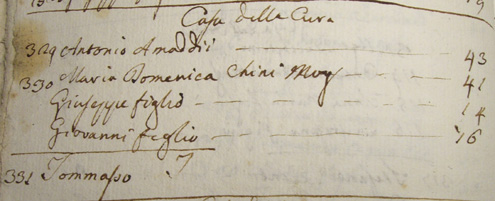 19
Casa della Cura
329 Antonio Amaddii 43
330 Maria Domenica Chini Mog 41
Giuseppe figlio 14
Giovanni figlio 16
331 Tommaso